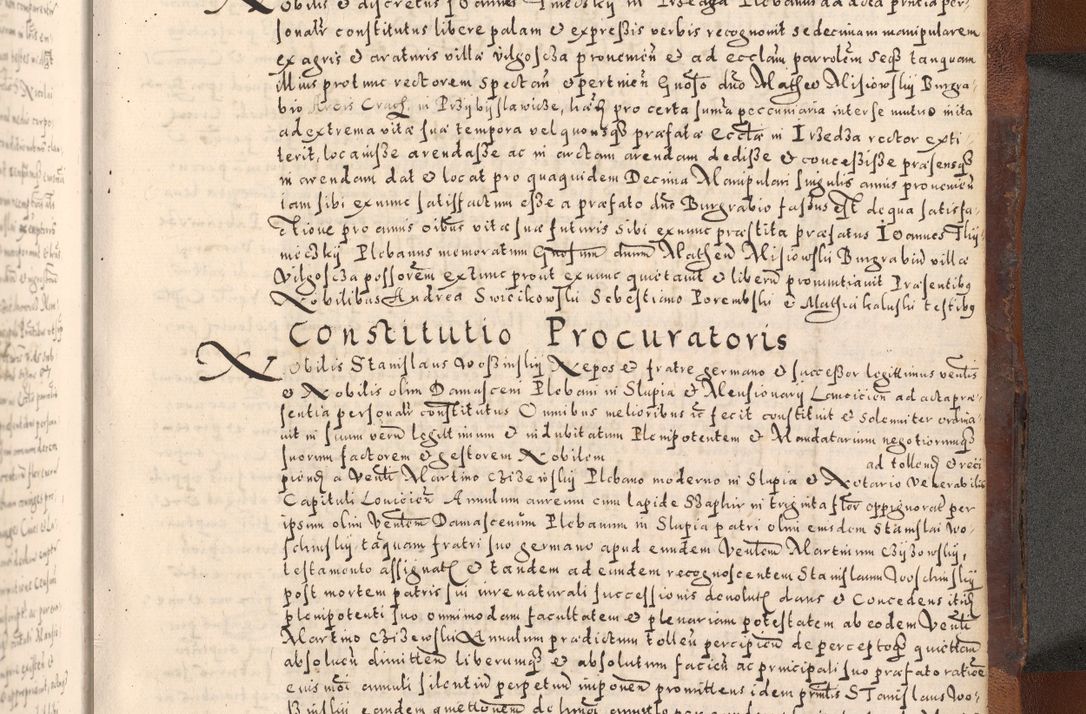 Nobilis & discretus Joannes in Plebanus ad acta pntia per-
sonalr constitutus libere palam & expressis verbis recognovit se decimam manipularem
ex agris & araturis villæ Vilgoscza provenien & ad ecclam parrolem seqs tanquam
illius protunc rectorem spectan & pertinen Gnoso dno Matheo Misiowskij Burgra-
bio Arcis Crac in Przybyslawicze, pro certa summa peccuniaria inter se mutuo inita
ad extrema vitæ suæ tempora vel præfatæ eccliæ in Irzedza rector exti-
terit, locavisse arendasse ac in arctam arendam dedisse & concessisse præsensqz
in arendam dat & locat pro quaquidem Decima Manipulari singulis annis provenien
iam sibi ex nunc satisfactum esse a præfato dno Burgrabio fassus est de qua satisfa-
ctione pro annis oibus vitæ suæ futuris sibi exnunc præstita præfatus Ioannes
Plebanus memoratum Gnosum dnum Matheu Misiowskij Burgrabiu villæ
Vilgoscza possorem extunc prout ex nunc quietavit & liberu pronuntiavit Præsentibq
Nobilibus Andrea Swiecikowski Sebestiano Porembski & Mathia kaluski testibq
Constitutio Procuratoris
Nobilis Stanislaus Woszinskij Nepos & fratre germano & successor legittimus ventis
& Nobilis olim Damasceni Plebani in Slupia & Mensionarij Lovicien ad acta præ-
sentia personalr constitutus Omnibus melioribus &c fecit constituit & solemniter ordina-
vit in suum veru legittimum & indubitatum Plenipotentem & Mandatarium negotiorumqz
suorum factorem & gestorem Nobilem ad tollend & reci
piend a Venli Martino Czizewskij Plebano moderno in Slupia & Notario Venerabilis
Capituli Lovicien Annulum aureum cum lapide Szaphir in triginta flor oppignorat per
ipsum olim Ventem Damascenum Plebanum in Slupia patri olim eiusdem Stanislai Wo-
schinskij tanquam fratri suo germano apud eundem Ventem Martinum Czyzowskij,
testamento assignat & tandem ad eundem recognoscentem Stanislaum Woschinskij
post mortem patris sui iure naturali successionis devolut dans & Concedens
plenipotenti suo omnimodam facultatem & plenariam potestatem ab eodem Venli
Martino Czizewski Annulum prædictum tollen percipien de perceptoqz quietan
absolven dimitten liberumqz & absolutum facien ac principali suo præfato ratione
eius moi annuli silentiu perpetuu imponen promittens idem prntis Stanislaus Wo-